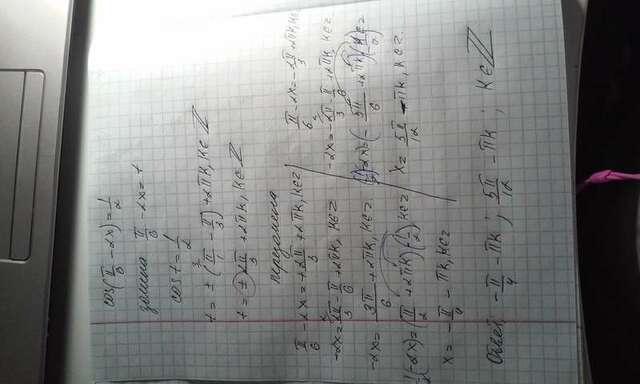 cos(π/6 - 2x) = 1/2
замена π/6 - 2x = t
cos t = 1/2
t = ± (π/1 - π/3) + 2πk, k∈Z
t = ± 2π/3 + 2πk, k∈Z
π/6 - 2x = + 2π/3 + 2πk, k∈Z
-2x = 2π/3 - π/6 + 2πk, k∈Z
-2x = 3π/6 + 2πk, k∈Z
(-2x) = (π/2 + 2πk)(-1/2) k∈Z
x = - π/4 - πk, k∈Z
π/6 - 2x = - 2π/3 + 2πk, k∈Z
-2x = - 2π/3 - π/6 + 2πk, k∈Z
-2x = (- 5π/6 + 2πk)
x = 5π/12 - πk, k∈Z.
Ответ - π/4 - πk ; 5π/12 - πk ; k∈Z